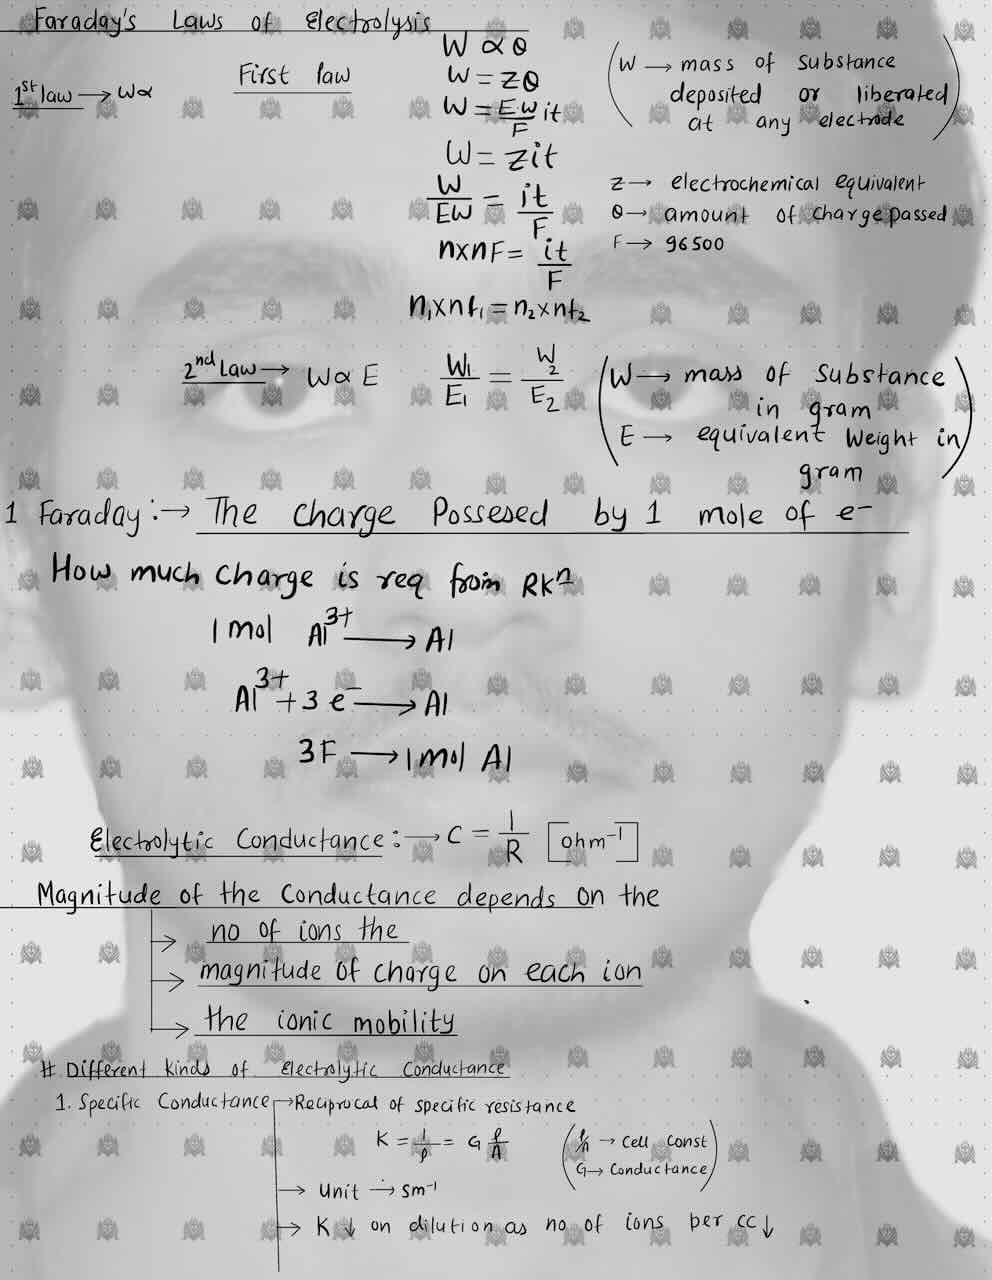 Faraday's Laws of Electrolysis
1st law → W∝
First law
W ∝ θ
W = Zθ
W = E.W/F it
W = Zit
W/EW = it/F
n×nF = it/F
n₁×nf₁ = n₂×nf₂
(W → mass of Substance
deposited or liberated
at any electrode)
Z → electrochemical equivalent
θ → amount of charge passed
F → 96500
2nd Law → W ∝ E
W₁/E₁ = W₂/E₂
(W → mass of Substance
in gram
E → equivalent Weight in
gram)
1 Faraday :→ The charge Possesed by 1 mole of e⁻
How much charge is req from RKⁿ
1 mol Al³⁺ → Al
Al³⁺ + 3 e⁻ → Al
3F → 1 mol Al
Electrolytic Conductance : → C = 1/R [ohm⁻¹]
Magnitude of the Conductance depends on the
→ no of ions the
→ magnitude of charge on each ion
→ the ionic mobility
# Different kinds of Electrolytic Conductance
1. Specific Conductance → Reciprocal of specific resistance
K = 1/ρ = G ℓ/A
(ℓ/A → Cell Const
G → Conductance)
→ Unit → Sm⁻¹
→ K ↓ on dilution as no of ions per cc ↓